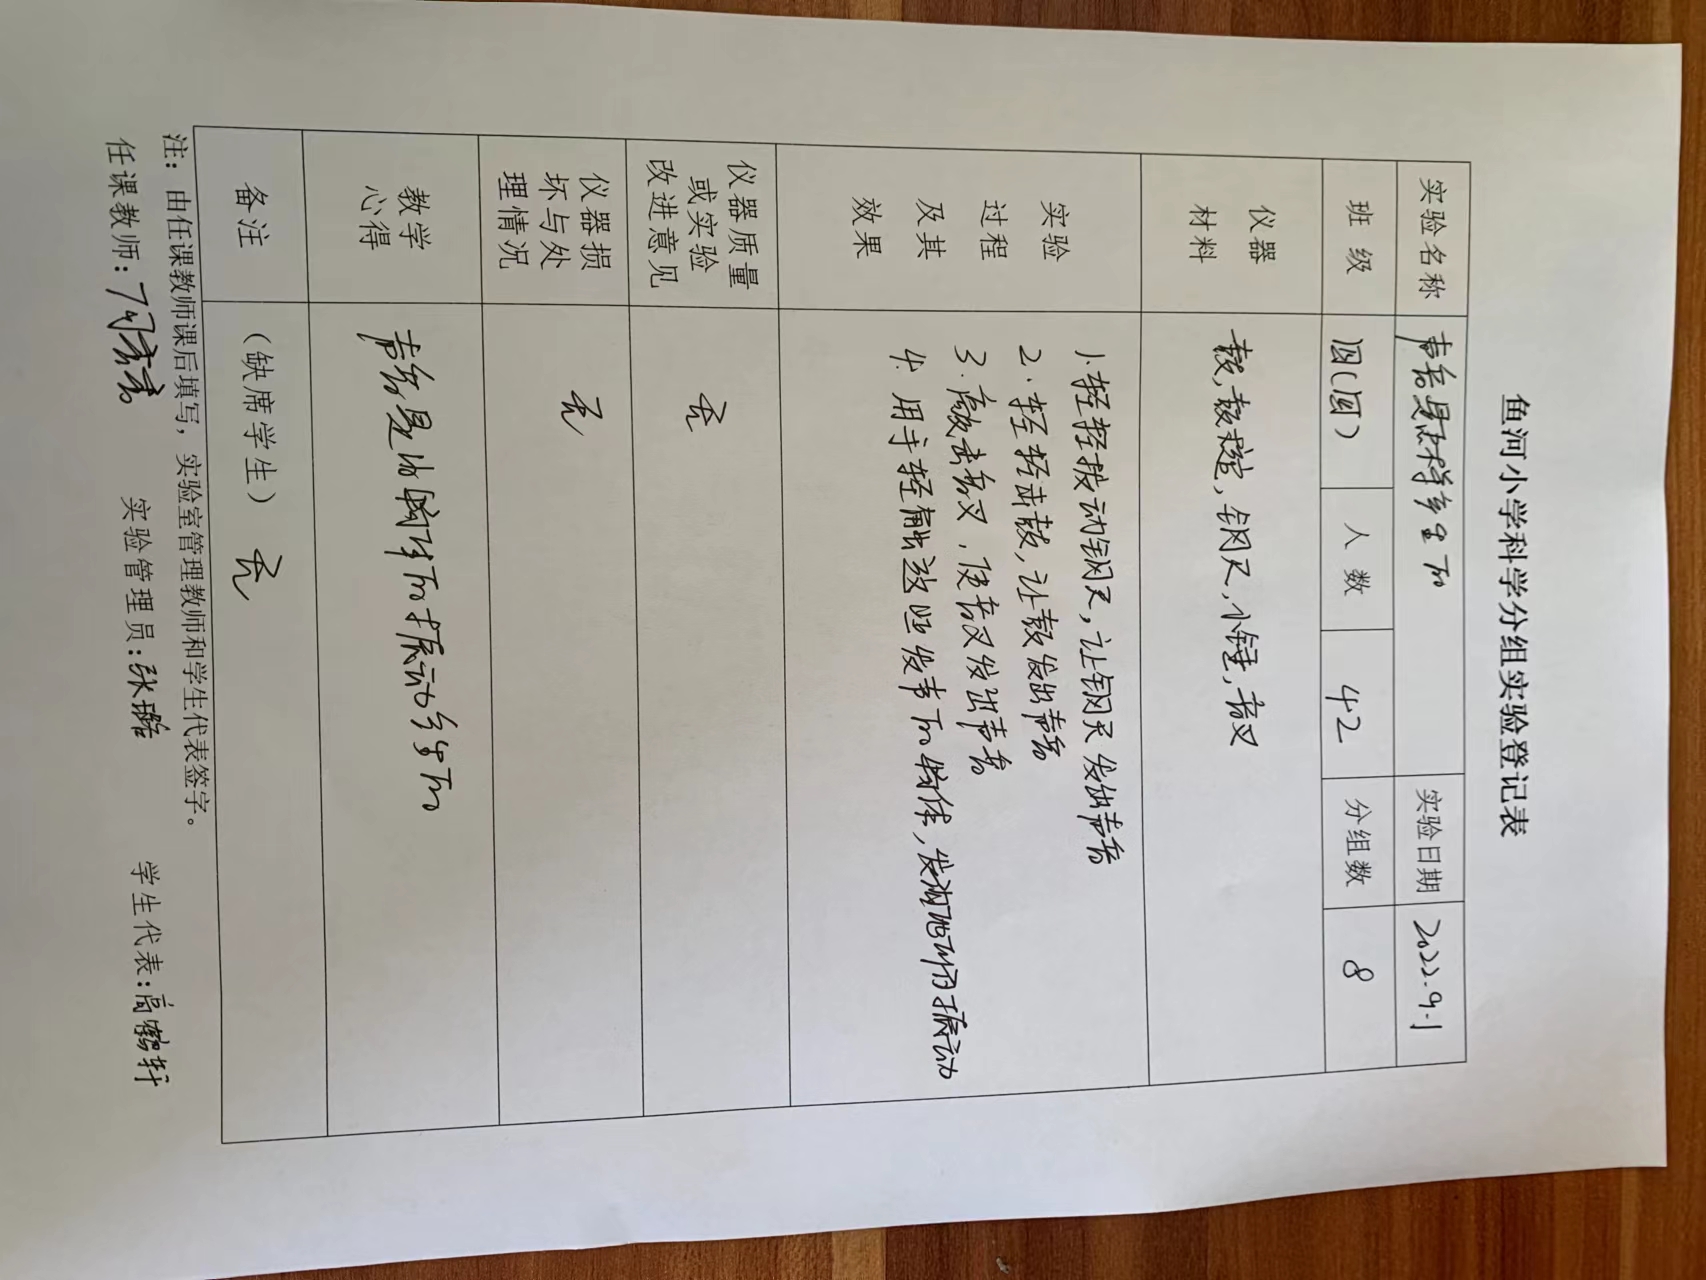 鱼河小学科学分组实验登记表
实验名称 声音是怎样产生的 实验日期 2022.9.1
班 级 四(四) 人 数 42 分组数 8
仪器
材料
鼓,鼓槌,钢尺,小锤,音叉
实验
过程
及其
效果
1.轻轻拨动钢尺,让钢尺发出声音
2.轻轻击鼓,让鼓发出声音
3.敲击音叉,使音叉发出声音
4.用手轻触这些发声的物体,发测它们的振动
仪器质量
或实验
改进意见
无
仪器损
坏与处
理情况
无
教学
心得
声音是由物体的振动产生的
备注
(缺席学生) 无
注:由任课教师课后填写,实验室管理教师和学生代表签字。
任课教师: 实验管理员:张璐 学生代表:高鹤轩